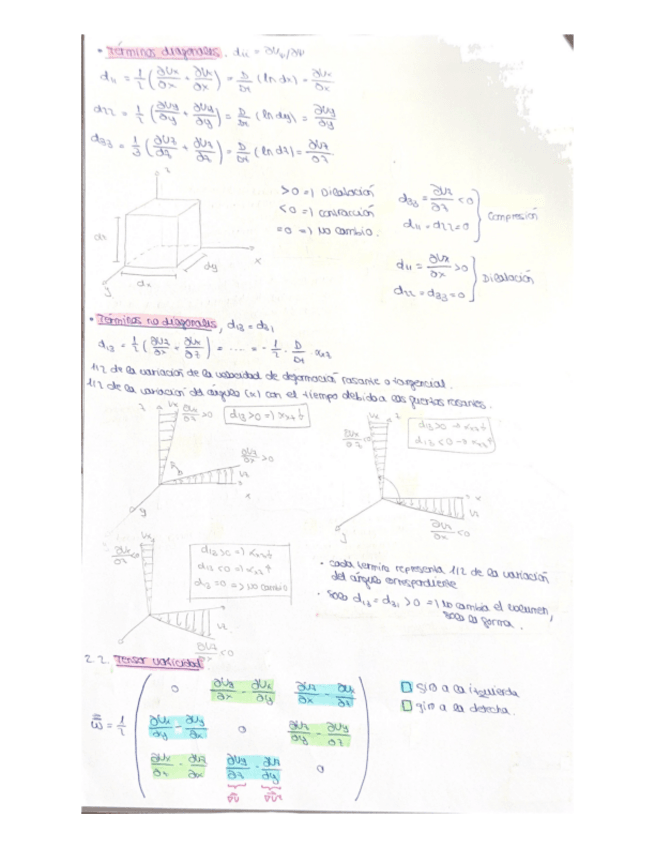 • Términos diagonales. dii = ∂Uψ/∂ψ
d11 = 1/2 (∂Ux/∂x + ∂Ux/∂x) = D/Dt (ln dx) = ∂Ux/∂x
d22 = 1/2 (∂Uy/∂y + ∂Uy/∂y) = D/Dt (ln dy) = ∂Uy/∂y
d33 = 1/3 (∂Uz/∂z + ∂Uz/∂z) = D/Dt (ln dz) = ∂Uz/∂z
z
>0 => Dilatación
<0 => contracción
=0 => No cambio.
d33 = ∂Uz/∂z <0
d11 = d22 = 0
Compresión
d11 = ∂Ux/∂x >0
d22 = d33 = 0
Dilatación
dz
dx
dy
x
y
• Términos no diagonales, d13 = d31
d13 = 1/2 (∂Uz/∂x + ∂Ux/∂z) = .... = - 1/2 · D/Dt · αxz
1/2 de la variación de la velocidad de deformación rasante o tangencial.
1/2 de la variación del ángulo (α) con el tiempo debido a las fuerzas rasantes.
z Vx ∂Ux/∂z >0
d13 >0 =>
∂Uz/∂x >0
Vz
x
y
Vx z
∂Ux/∂z <0
d13 >0 → αxz↓
d13 <0 → αxz↑
x
Vz
∂Uz/∂x <0
y
Vx
∂Ux/∂z <0
d13 <0 => αxz↑
d13 =0 => No cambio
Vz
∂Uz/∂x <0
• cada termino representa 1/2 de la variación
del ángulo correspondiente
• Solo d13 = d31 >0 => No cambia el volumen,
solo la forma.
2.2. Tensor vorticidad
ω = 1/2
0 ∂Uy/∂x - ∂Ux/∂y ∂Uz/∂x - ∂Ux/∂z
∂Ux/∂y - ∂Uy/∂x 0 ∂Uz/∂y - ∂Uy/∂z
∂Ux/∂z - ∂Uz/∂x ∂Uy/∂z - ∂Uz/∂y 0
Giro a la izquierda
giro a la derecha.